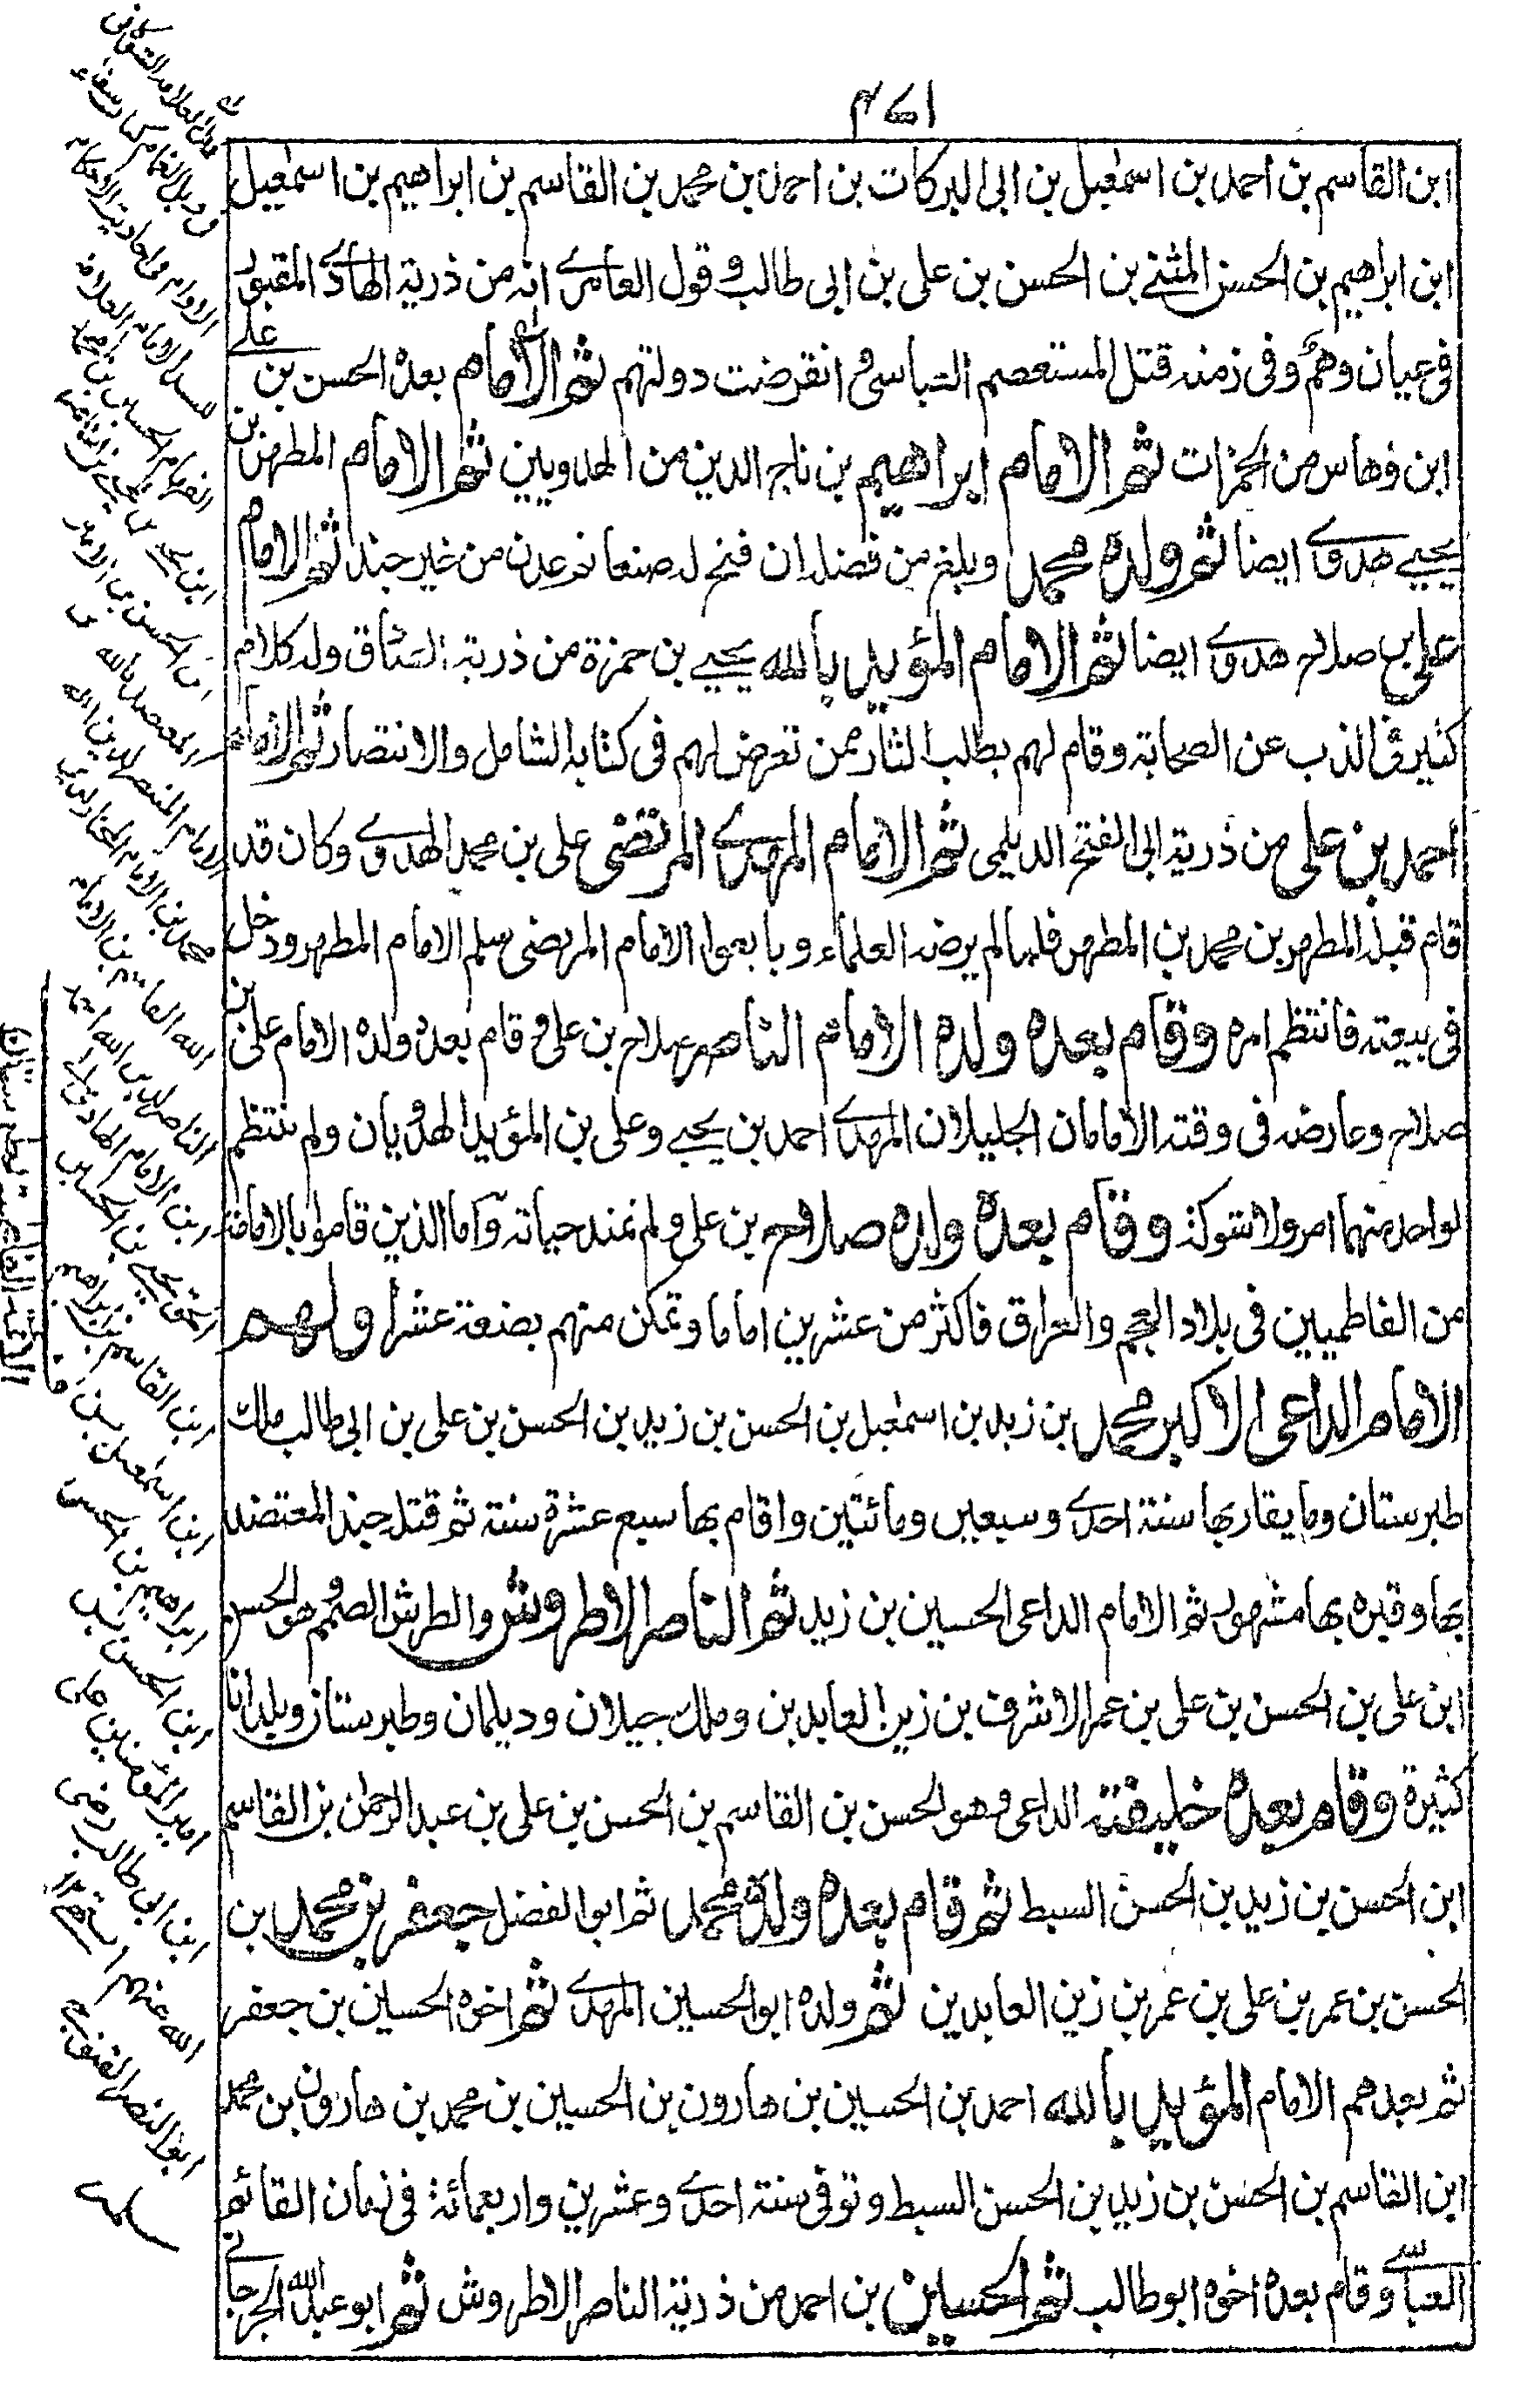 ٤٧١
ابن القاسم بن احمد بن اسمعيل بن ابى البركات بن احمد بن محمد بن القاسم بن ابراهيم بن اسمعيل
ابن ابراهيم بن الحسن المثنے بن الحسن بن على بن ابى طالب وقول العامرے انه من ذرية الهادے المقبور
فى عيان وهمٌ وفى زمنه قتل المستعصم العباسى وانقرضت دولتهم ثم الامام بعده الحسن بن علے
ابن وهاس من الحمزات ثم الامام ابراهيم بن تاج الدين من الهدويين ثم الامام المطهر بن
يحيے هدوے ايضا ثم ولده محمد وبلغ من فضله ان فتح له صنعا وعدن من غير جند ثم الامام
على بن صلاح هدوے ايضا ثم الامام المؤيد بالله يحيے بن حمزة من ذرية وله كلام
كثير فى الذب عن الصحابة وقام لهم بطلب الثار ممن تعرض لهم فى كتابه الشامل والانتصار ثم الامام
احمد بن على من ذرية ابى الفتح الديلمى ثم الامام المهدے المرتضى على بن محمد الهدوے وكان قد
قام قبله المطهر بن محمد بن المطهر فلما لم يرضه العلماء وبايعوا الامام المرتضى سلم الامام المطهر ودخل
فى بيعته فانتظم امره وقام بعده ولده الامام الناصر صلاح بن على وقام بعده ولده الامام على بن
صلاح وعارضه فى وقته الامامان الجليلان المهدے احمد بن يحيے وعلى بن المؤيد الهدويان ولم ينتظم
لواحد منهما امر ولا شوكة وقام بعده ولده صلاح بن على ولم تمتد حياته واما الذين قاموا بالامامة
من الفاطميين فى بلاد العجم والعراق فاكثر من عشرين اماما وتمكن منهم بضعة عشر اولهم
الامام الداعى الاكبر محمد بن زيد بن اسمعيل بن الحسن بن زيد بن الحسن بن على بن ابى طالب ملك
طبرستان وما يقاربها سنة احدے وسبعين ومائتين واقام بها سبع عشرة سنة ثم قتله جند المعتضد
بها وقبره بها مشهور ثم الامام الداعى الحسين بن زيد ثم الناصر الاطروش والطرش الصمم وهو الحسن
ابن على بن الحسن بن على بن عمر الاشرف بن زين العابدين وملك جيلان وديلمان وطبرستان وبلدانا
كثيرة وقام بعده خليفته الداعى وهو الحسن بن القاسم بن الحسن بن على بن عبد الرحمن بن القاسم
ابن الحسن بن زيد بن الحسن السبط ثم قام بعده ولده محمد ثم ابو الفضل جعفر بن محمد بن
الحسن بن عمر بن على بن عمر بن زين العابدين ثم ولده ابو الحسين المهدے ثم اخوه الحسين بن جعفر
ثم بعدهم الامام المؤيد بالله احمد بن الحسين بن هارون بن الحسين بن محمد بن هارون بن محمد
ابن القاسم بن الحسن بن زيد بن الحسن السبط وتوفى سنة احدے وعشرين واربعمائة فى زمان القائم
العباسے وقام بعده اخوه ابو طالب ثم الحسين بن احمد من ذرية الناصر الاطروش ثم ابو عبد الله الجرجانے
الامام العلامة
ابن يحيے بن
ابن الحسن بن
المعتضد بالله
محمد بن الامام
الناصر لدين الله احمد
ابن الامام الهادے الى
الحق يحيے بن الحسين
ابن القاسم بن ابراهيم
ابن اسمعيل بن
ابراهيم بن الحسن
ابن الحسن بن
امير المؤمنين على
ابن ابى طالب رضى
الله عنهم
ابو النصر